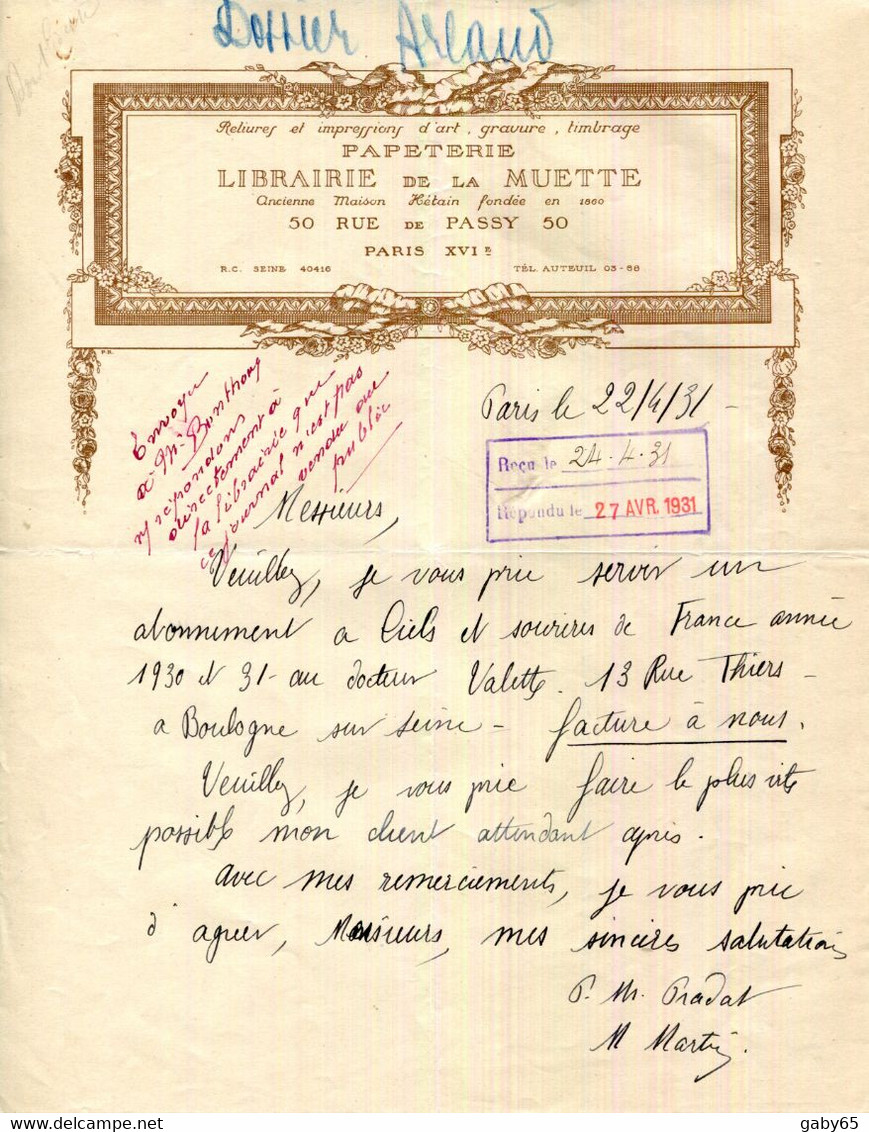 Dossier Arlaud
Reliures et impressions d'art, gravure, timbrage
PAPETERIE
LIBRAIRIE DE LA MUETTE
Ancienne Maison Hétain fondée en 1860
50 RUE DE PASSY 50
PARIS XVIE
R.C. SEINE 40416 TÉL. AUTEUIL 03-88
Envoyer
à Mr Bonthoux
répondons
directement à
la librairie que
ce journal n'est pas
vendu au
public
Paris le 22/4/31 -
Reçu le 24.4.31
Répondu le 27 AVR. 1931
Messieurs,
Veuillez, je vous prie servir un
abonnement a Ciels et sourires de France année
1930 et 31 - au docteur Valette. 13 Rue Thiers -
a Boulogne sur seine - facture à nous.
Veuillez, je vous prie faire le plus vite
possible mon client attendant après.
avec mes remerciements, je vous prie
d'agréer, Messieurs, mes sincères salutations
P. Mr. Pradat
M Martin.
gaby65